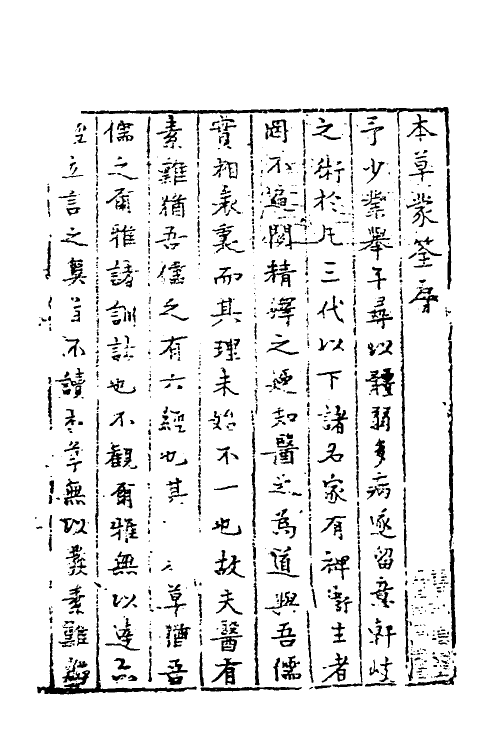 本草蒙筌序
予少業舉子尋以體弱多病遂留意軒岐
之術於凡三代以下諸名家有裨衛生者
罔不遍閱精繹之廼知醫之為道與吾儒
實相表裏而其理未始不一也故夫醫有
素難猶吾儒之有六經也其草猶吾
儒之爾雅諸訓詁也不觀爾雅無以達
經立言之奧不讀本草無以發素難